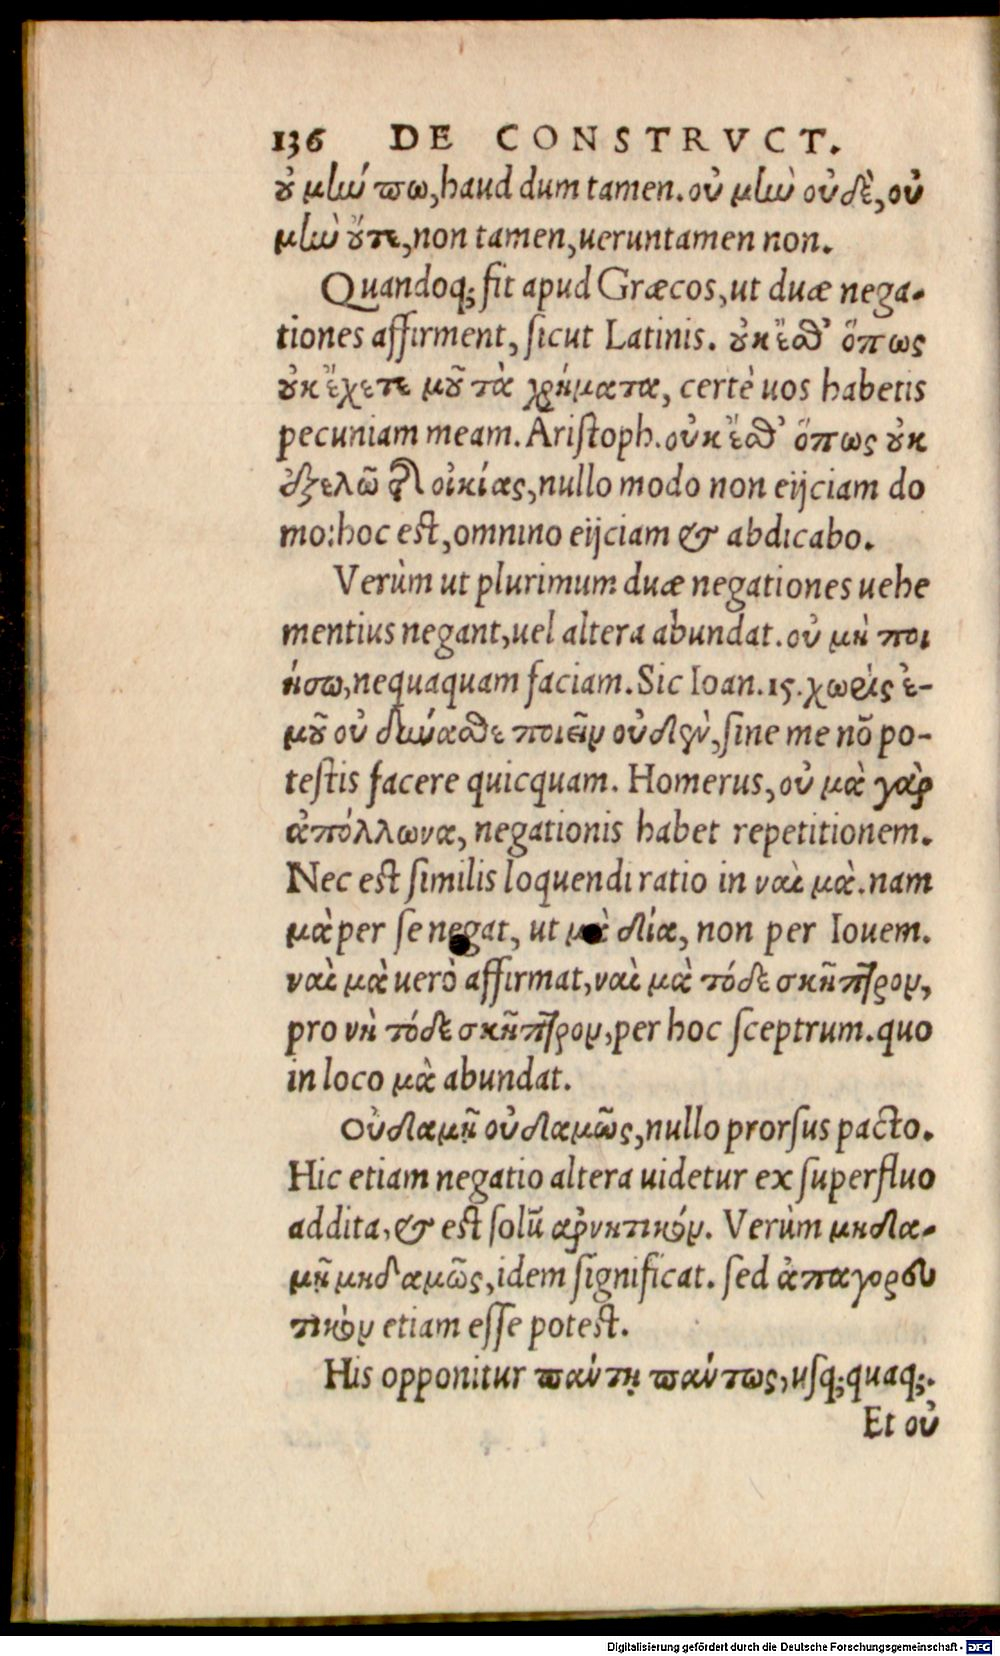 136 DE CONSTRVCT.
οὐ μὴν πω, haud dum tamen. οὐ μὴν οὐδὲ, οὐ
μὴν οὔτε, non tamen, ueruntamen non.
Quandoq; fit apud Græcos, ut duæ nega-
tiones affirment, sicut Latinis. οὐκ ἔσθ' ὅπως
οὐκ ἔχετε μοῦ τὰ χρήματα, certè uos habetis
pecuniam meam. Aristoph. οὐκ ἔσθ' ὅπως οὐκ
ἐξελῶ τῆς οἰκίας, nullo modo non eijciam do
mo: hoc est, omnino eijciam & abdicabo.
Verùm ut plurimum duæ negationes uehe
mentius negant, uel altera abundat. οὐ μὴ ποι
ήσω, nequaquam faciam. Sic Ioan. 15. χωρὶς ἐ-
μοῦ οὐ δύνασθε ποιεῖν οὐδὲν, sine me nõ po-
testis facere quicquam. Homerus, οὐ μὰ γὰρ
ἀπόλλωνα, negationis habet repetitionem.
Nec est similis loquendi ratio in ναὶ μὰ. nam
μὰ per se negat, ut μὰ δία, non per Iouem.
ναὶ μὰ uerò affirmat, ναὶ μὰ τόδε σκῆπτρον,
pro νὴ τόδε σκῆπτρον, per hoc sceptrum. quo
in loco μὰ abundat.
Οὐδαμῇ οὐδαμῶς, nullo prorsus pacto.
Hic etiam negatio altera uidetur ex superfluo
addita, & est solũ ἀρνητικόν. Verùm μηδα-
μῇ μηδαμῶς, idem significat. sed ἀπαγορευ
τικὸν etiam esse potest.
His opponitur πάντῃ πάντως, usq; quaq;.
Et οὐ
Digitalisierung gefördert durch die Deutsche Forschungsgemeinschaft - DFG